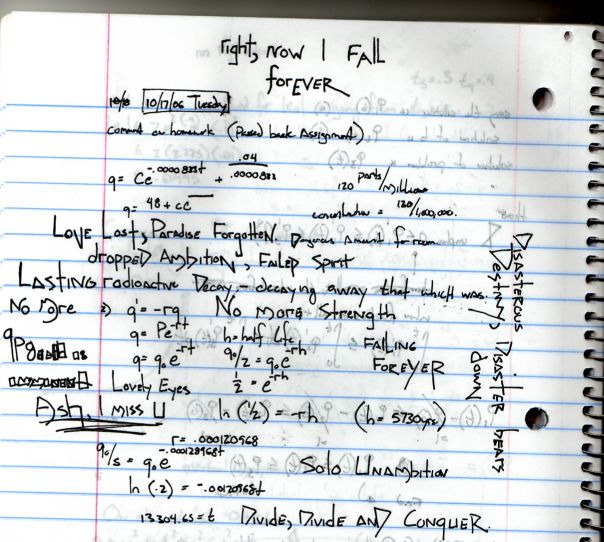 right, now I FALL
forEVER
10/8 10/17/06 Tuesday
comment on homework (Passed back Assignment)
q = Ce^-.0000833t + .04/.0000833
120 parts/million
q = 48 + ce
concentration = 120/1,000,000.
Love Lost, Paradise Forgotten Dangerous amount for room
droppeD AmbITION, FAILED SpIrIT
LASTING radioactive Decay - decaying away that which was.
No more 2) q' = -rq No more Strength
q = Pe^-rt h = half life FALLING
q = q₀e^-rt q₀/2 = q₀e^-rh ForEVER
Lovely Eyes 1/2 = e^-rh
Ash, I miss U ln(1/2) = -rh (h = 5730yrs)
r = .000120968
q₀/5 = q₀e^-.000120968t Solo UnAmbition
ln(.2) = -.000120968t
13304.65 = t Divide, Divide AND CONQUER.
DISASTEROUS DISASTER bears
DESTINY, down